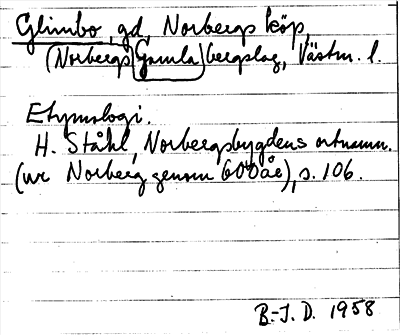 Glimbo, gd, Norbergs köp,
(Norbergs Gamla) bergslag, Västm. l.
Etymologi.
H. Ståhl, Norbergsbygdens ortnamn.
(ur Norberg genom 600 år), s. 106.
B.-J. D. 1958